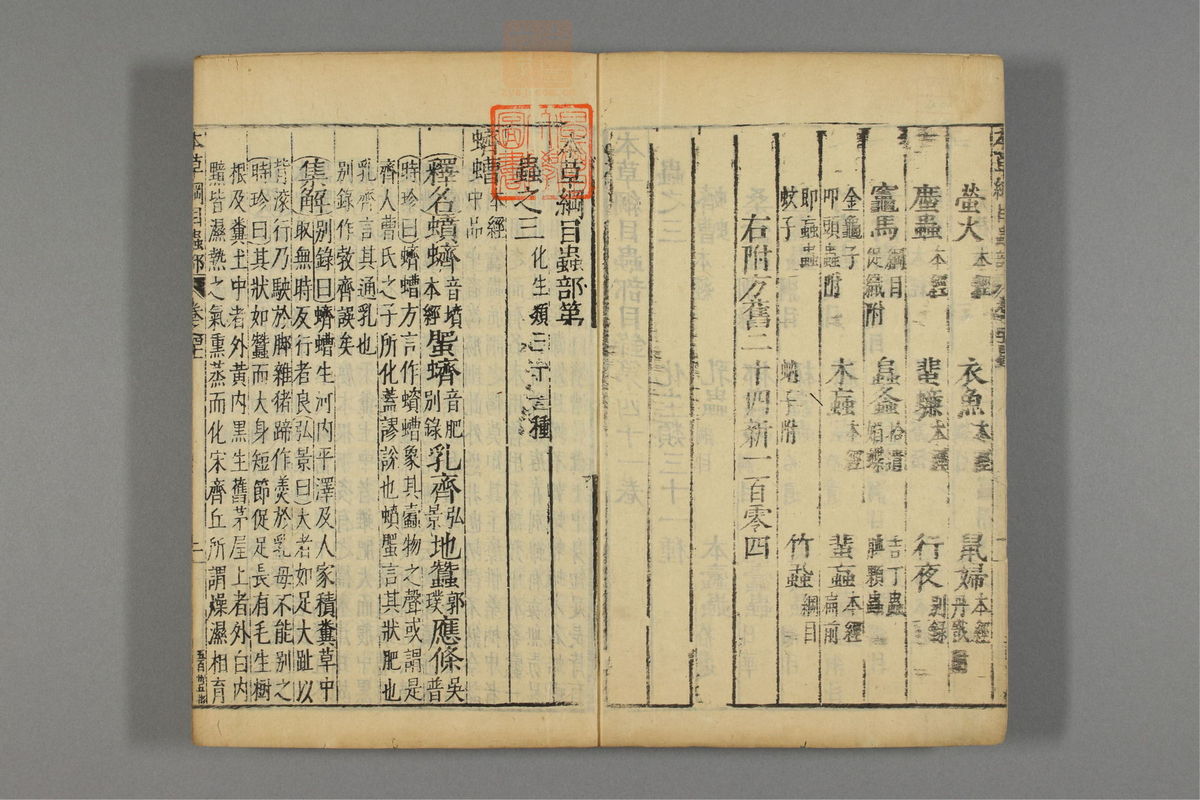 螢火 本經
衣魚 本經
鼠婦 本經
丹戩附
䗪蟲 本經
蜚蠊 本經
行夜 別錄
竈馬 綱目
促織附
𧒂螽 拾遺
吉丁蟲
金龜子
叩頭蟲附
木蝱 本經
蜚蝱 本經
即蝱蟲
蚊子
蚋子附
竹蝨 綱目
右附方舊二十四新一百零四
本草綱目蟲部第
蟲之三 化生類三十一種
蠐螬 本經中品
釋名蟦蠐音墳本經䘃蠐音肥別錄乳齊弘景地蠶郭璞應條吳普
時珍曰蠐螬方言作蠀螬象其蠹物之聲或謂是
齊人曹氏之子所化蓋謬說也蟦䘃言其狀肥也
乳齊言其通乳也
別錄作敎齊誤矣
集解別錄曰蠐螬生河內平澤及人家積糞草中
取無時反行者良弘景曰大者如足大趾以
背滚行乃駛於脚雜猪蹄作羮於乳母不能別之
時珍曰其狀如蠶而大身短節促足長有毛生樹
根及糞土中者外黃內黑生舊茅屋上者外白內
黯皆濕熱之氣熏蒸而化宋齊丘所謂燥濕相育